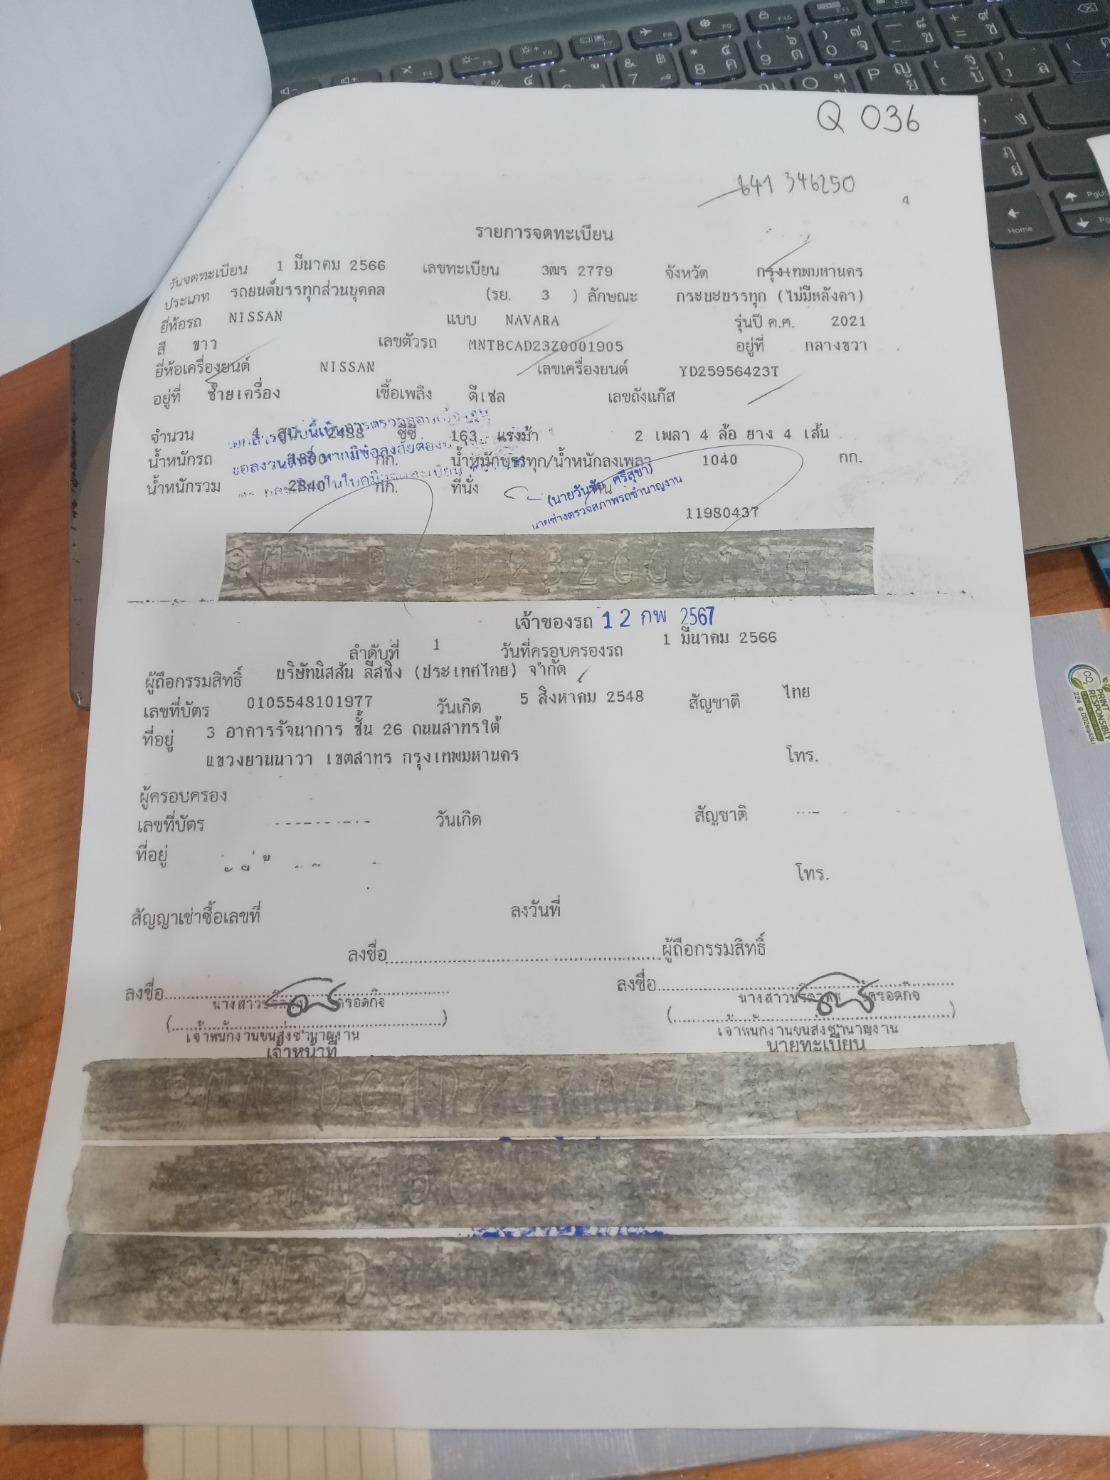 Q 036
641 346250
4
รายการจดทะเบียน
วันจดทะเบียน 1 มีนาคม 2566 เลขทะเบียน 3ฒร 2779 จังหวัด กรุงเทพมหานคร
ประเภท รถยนต์บรรทุกส่วนบุคคล (รย. 3 ) ลักษณะ กระบะบรรทุก (ไม่มีหลังคา)
ยี่ห้อรถ NISSAN แบบ NAVARA รุ่นปี ค.ศ. 2021
สี ขาว เลขตัวรถ MNTBCAD23Z0001905 อยู่ที่ กลางขวา
ยี่ห้อเครื่องยนต์ NISSAN เลขเครื่องยนต์ YD25956423T
อยู่ที่ ซ้ายเครื่อง เชื้อเพลิง ดีเซล เลขถังแก๊ส
จำนวน 4 สูบ 2488 ซีซี 163 แรงม้า 2 เพลา 4 ล้อ ยาง 4 เส้น
น้ำหนักรถ 1800 กก. น้ำหนักบรรทุก/น้ำหนักลงเพลา 1040 กก.
น้ำหนักรวม 2840 กก. ที่นั่ง
(นายวันชัย ศรีสุขา)
นายช่างตรวจสภาพรถชำนาญงาน
11980437
เจ้าของรถ 12 กพ 2567
ลำดับที่ 1 วันที่ครอบครองรถ 1 มีนาคม 2566
ผู้ถือกรรมสิทธิ์ บริษัทนิสสัน ลีสซิ่ง (ประเทศไทย) จำกัด
เลขที่บัตร 0105548101977 วันเกิด 5 สิงหาคม 2548 สัญชาติ ไทย
ที่อยู่ 3 อาคารรัจนาการ ชั้น 26 ถนนสาทรใต้
แขวงยานนาวา เขตสาทร กรุงเทพมหานคร โทร.
ผู้ครอบครอง
เลขที่บัตร วันเกิด สัญชาติ
ที่อยู่
โทร.
สัญญาเช่าซื้อเลขที่ ลงวันที่
ลงชื่อ ผู้ถือกรรมสิทธิ์
ลงชื่อ ลงชื่อ
เจ้าพนักงานขนส่งชำนาญงาน เจ้าพนักงานขนส่งชำนาญงาน
เจ้าหน้าที่ นายทะเบียน